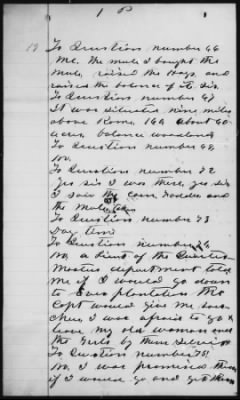 1 P
19 To Question number 66
Me. The mule I bought the
Mule, raised the Hogs, and
raised the balance of it. Sir
To Question number 67
It was situated nine miles
above Rome 160 about 60
acres, balance woodland
To Question number 68
No.
To Question number 72
Yes sir I was there, yes sir
I saw the Corn, fodder and
the Mule,
To Question number 73
Day time
To Question number 74
No, a Lieut of the Quarter
Masters department told
me if I would go down
to plantation the
Capt would give me
I was afraid to go &
leave my old woman and
the Girls by them selves
To Question number 75
No, I was promised
if I would go and get them